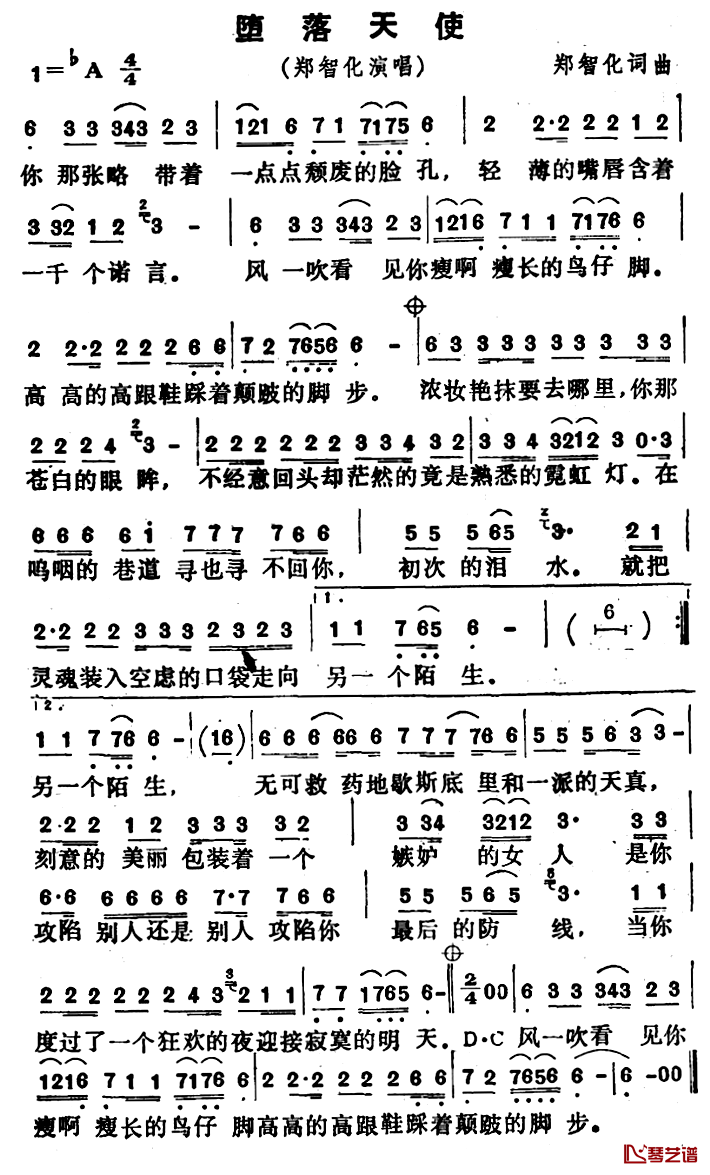 堕落天使
1=♭A 4/4 （郑智化演唱） 郑智化词曲
6 3 3 343 2 3 | 121 6 7 1 7175 6 | 2 2·2 2 2 1 2 |
你 那张略 带着 一点点颓废的脸 孔，轻 薄的嘴唇含着
3 32 1 2 3 - | 6 3 3 343 2 3 | 1216 7 1 1 7176 6 |
一千 个诺 言。 风 一吹看 见你瘦啊 瘦长的鸟仔 脚。
2 2·2 2 2 2 6 6 | 7 2 7656 6 - | 6 3 3 3 3 3 3 3 3 |
高 高的高跟鞋踩着颠跛的脚 步。 浓妆艳抹要去哪里，你那
2 2 2 4 3 - | 2 2 2 2 2 2 3 3 4 3 2 | 3 3 4 3212 3 0·3 |
苍白的眼 眸， 不经意回头却茫然的竟是熟悉的霓虹 灯。在
6 6 6 6 1 7 7 7 7 6 6 | 5 5 5 65 3· 2 1 |
呜咽的 巷道 寻也寻 不回你， 初次 的泪 水。 就把
2·2 2 2 3 3 3 2 3 2 3 | 1. 1 1 7 65 6 - | ( 6 ) :|
灵魂装入空虚的口袋走向 另一个陌 生。
2. 1 1 7 76 6 - | (16) | 6 6 6 66 6 7 7 7 76 6 | 5 5 5 6 3 3 - |
另一个陌 生， 无可救 药地歇斯底 里和一派的天真，
2·2 2 1 2 3 3 3 3 2 | 3 34 3212 3· 3 3 |
刻意的 美丽 包装着 一个 嫉妒 的女 人 是你
6·6 6 6 6 6 7·7 7 6 6 | 5 5 5 6 5 3· 1 1 |
攻陷 别人还是 别人 攻陷你 最后 的防 线， 当你
2 2 2 2 2 2 4 3 2 1 1 | 7 7 1765 6 - | 2/4 0 0 | 6 3 3 343 2 3 |
度过了一个狂欢的夜迎接寂寞的明 天。D·C 风一吹看 见你
1216 7 1 1 7176 6 | 2 2·2 2 2 2 6 6 | 7 2 7656 6 - | 6 - 0 0 |
瘦啊 瘦长的鸟仔 脚高高的高跟鞋踩着颠跛的脚 步。
琴艺谱